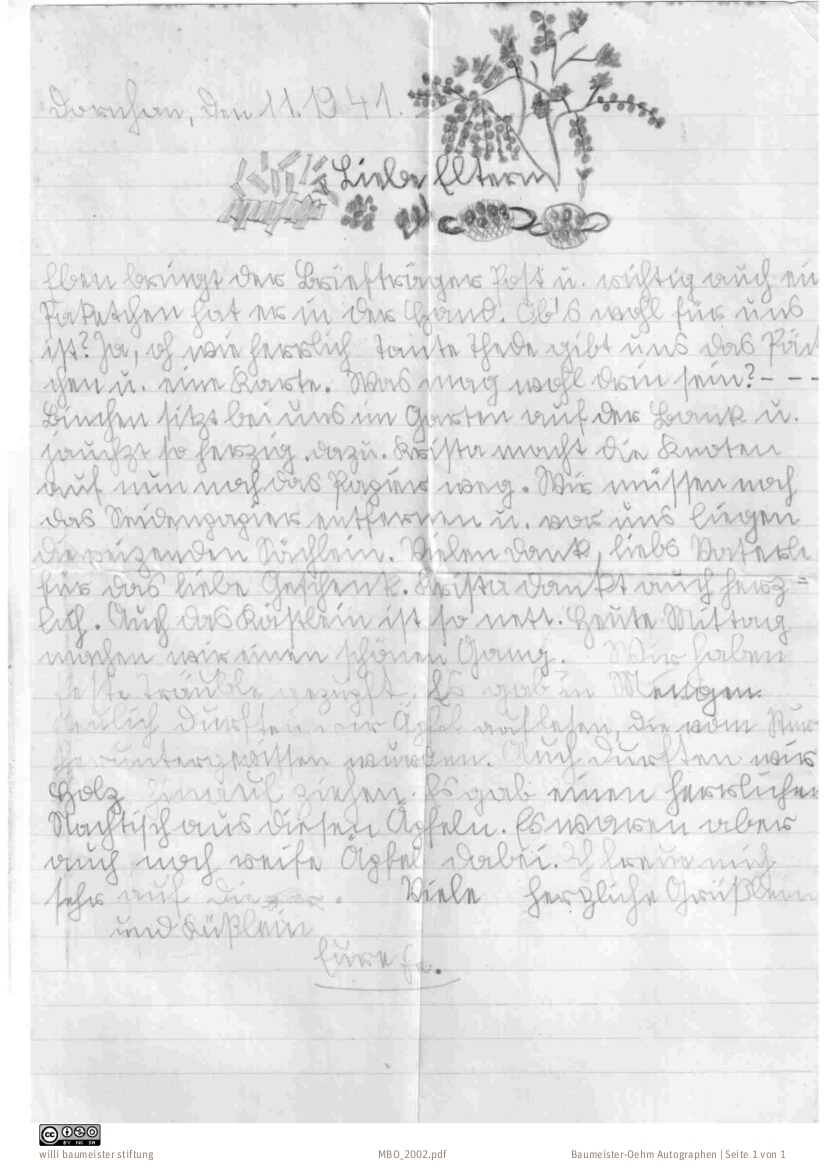 Dornhan, den 11. 1941.
Liebe Eltern
Eben bringt der Briefträger Post u. richtig auch ein
Paketchen hat er in der Hand. Ob's wohl für uns
ist? Ja, oh wie herrlich Tante Thede gibt uns das Päck
chen u. eine Karte. Was mag wohl drin sein? - - -
Binchen sitzt bei uns im Garten auf der Bank u.
jauchzt so herzig dazu. Krista macht die Knoten
auf nun noch das Papier weg. Wir müssen noch
das Seidenpapier entfernen u. vor uns liegen
die reizenden Sächlein. Vielen Dank, liebs Vaterle
für das liebe Geschenk. Krista dankt auch herz=
lich. Auch das Käßlein ist so nett. Heute Mittag
machen wir einen schönen Gang. Wir haben
feste Träuble gezupft. Es gab in Mengen.
Neulich durften wir Äpfel auflesen, die vom
heruntergerissen wurden. Auch durften wir
Holz hinauf ziehen. Es gab einen herrlichen
Nachtisch aus diesen Äpfeln. Es waren aber
auch noch reife Äpfel dabei. Ich freue mich
sehr auf die . Viele herzliche Grüßlein
und Küßlein
Eure
willi baumeister stiftung MBO_2002.pdf Baumeister-Oehm Autographen | Seite 1 von 1